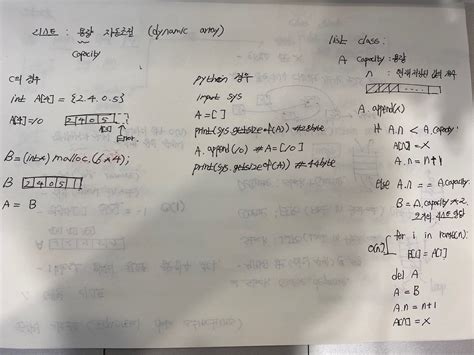 리스트 : 용량 자동조절 (dynamic array)
Capacity
C의 경우
int A[4] = {2.4.0.5}
A[4]=10 2 4 0 5
A[4]
B=(int*) malloc(6*4);
B 2 4 0 5
A = B
python 경우
import sys
A=[]
print(sys.getsizeof(A)) #28byte
A.append(10) #A=[10]
print(sys.getsizeof(A)) #44byte
list class :
A capacity : 용량
n : 현재 저장된 값의 개수
A.append(x)
if A.n < A.capacity:
A[n]=X
A.n = n+1
else A.n == A.capacity:
B = A.capacity *2
크기의 리스트 할당
O(n) for i in range(n):
B[i] = A[i]
del A
A = B
A.n = n+1
A[n] = X